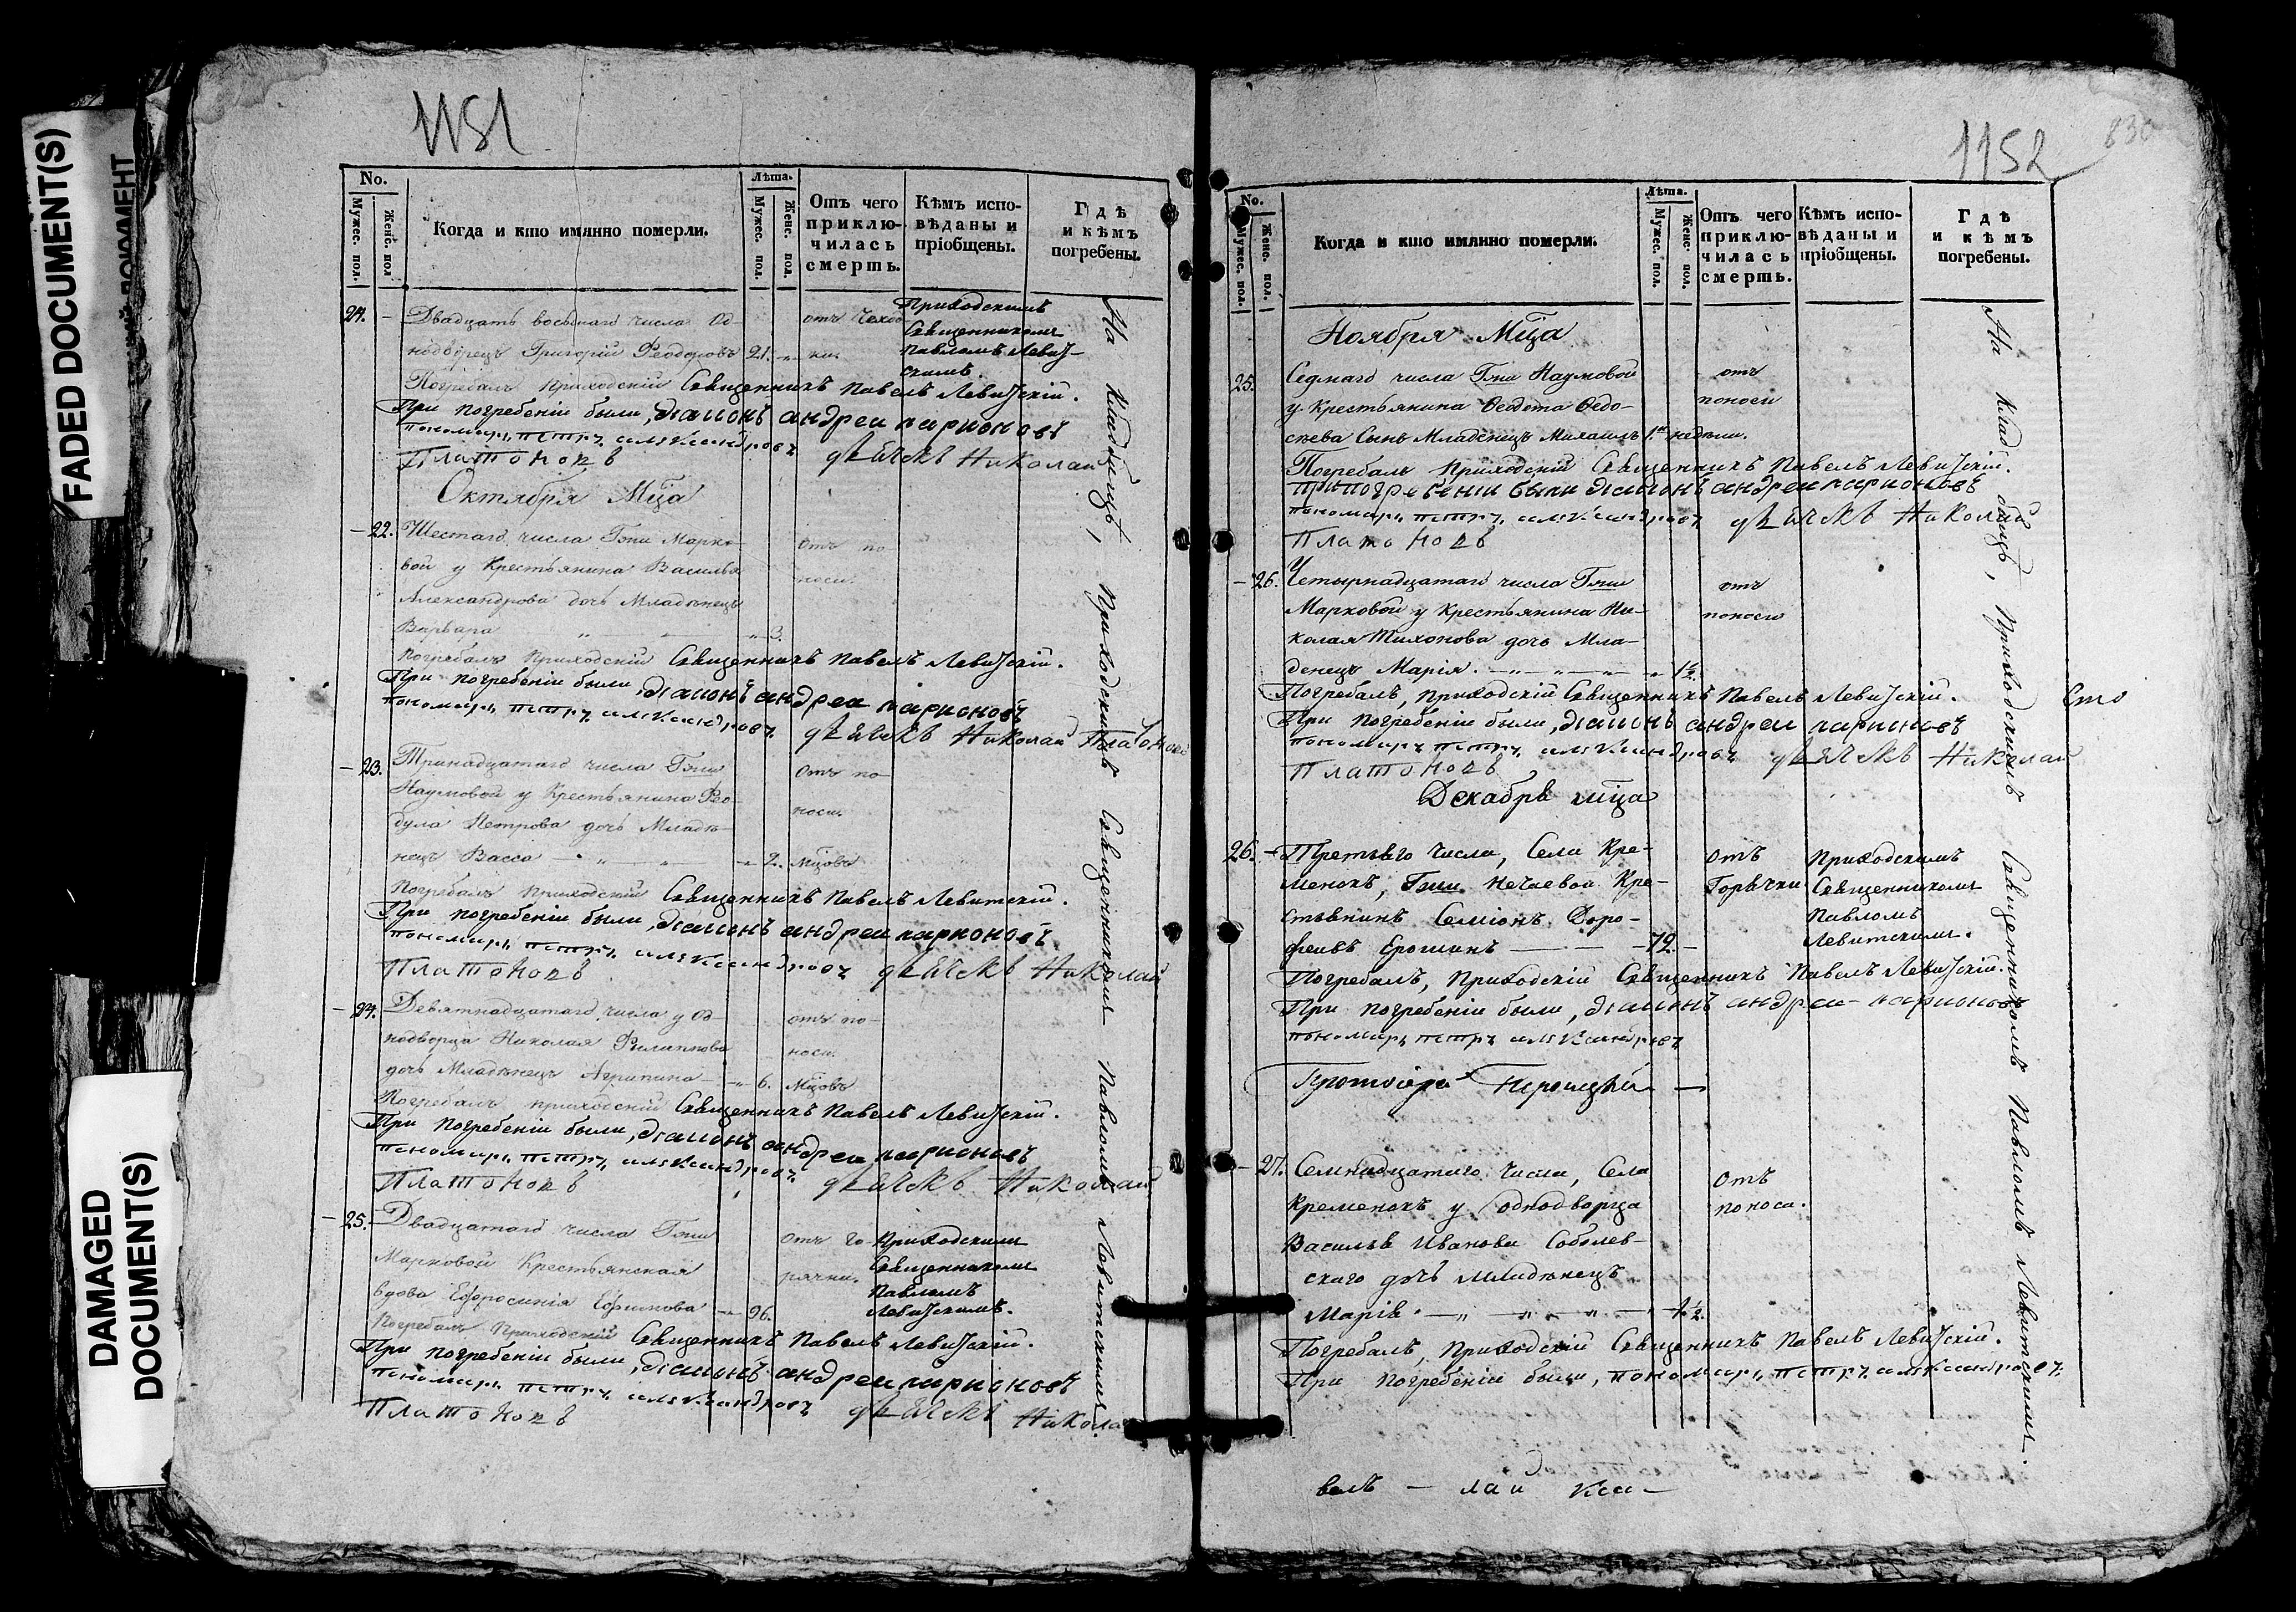 FADED DOCUMENT(S)
DAMAGED
DOCUMENT(S)
1151
No.
Мужес. пол.
Женс. пол
Когда и кто имянно померли.
Лѣта.
Мужес. пол.
Женс. пол.
Отъ чего приклю-
чилась
смерть.
Кѣмъ испо-
вѣданы и
пріобщены.
Гдѣ
и кѣмъ
погребены.
24. Двадцать восьмаго числа Од-
нодворецъ Григорій Ѳеодоровъ 21.
отъ чахот
ки
Приходскимъ
Священникомъ
Павломъ Левит-
скимъ.
Погребалъ Приходскій Священникъ Павелъ Левитскій.
При погребеніи были, діаконъ андреи ларионовъ
пономарь петръ александровъ дьячекъ Николай
Платоновъ
Октября Мца
22. Шестаго числа Гпжи Марко-
вой у Крестьянина Василья
Александрова дочь Младѣнецъ
Варвара 3.
отъ по-
носа.
Погребалъ Приходскій Священникъ Павелъ Левитскій.
При погребеніи были, діаконъ андреи ларионовъ
пономарь петръ александровъ дьячекъ Николай Платоновъ
23. Тринадцатаго числа Гпжи
Наумовой у Крестьянина Ѳео-
дула Петрова дочь Младѣ-
нецъ Васса 2. Мцовъ
отъ по-
носа.
Погребалъ приходскій Священникъ Павелъ Левитскій.
При погребеніи были, діаконъ андреи ларионовъ
пономарь петръ александровъ дьячекъ Николай
Платоновъ
24. Девятнадцатаго числа у Од-
нодворца Николая Филиппова
дочь Младѣнецъ Агрипина 6. Мцовъ
отъ по-
носа.
Погребалъ приходскій Священникъ Павелъ Левитскій.
При погребеніи были, діаконъ андреи ларионовъ
пономарь петръ александровъ дьячекъ Николай
Платоновъ
25. Двадцатаго числа Гпжи
Марковой Крестьянская
вдова Ефросинія Ефимова 96.
отъ го-
рячки.
Приходскимъ
Священникомъ
Павломъ
Левитскимъ.
Погребалъ Приходскій Священникъ Павелъ Левитскій.
При погребеніи были, діаконъ андреи ларионовъ
пономарь петръ александровъ дьячекъ Николай
Платоновъ
На кладбищѣ, Приходскимъ Священникомъ Павломъ Левитскимъ
1152
830
No.
Мужес. пол.
Женс. пол.
Когда и кто имянно померли.
Лѣта.
Мужес. пол.
Женс. пол.
Отъ чего
приклю-
чилась
смерть.
Кѣмъ испо-
вѣданы и
пріобщены.
Гдѣ
и кѣмъ
погребены.
Ноября Мца
25. Седмаго числа Гпжи Наумовой
у Крестьянина Ѳеодота Ѳедо-
сеева Сынъ Младенецъ Михаилъ 1.й недѣли.
отъ
поноса
Погребалъ Приходскій Священникъ Павелъ Левитскій.
При погребении были діаконъ андреи ларионовъ
пономарь петръ александровъ дьячекъ Николай
Платоновъ
26. Четырнадцатаго числа Гпжи
Марковой у Крестьянина Ни-
колая Тихонова дочь Мла-
денецъ Марія. 1½.
отъ
поноса
Погребалъ, Приходскій Священникъ Павелъ Левитскій.
При погребеніи были, діаконъ андреи ларионовъ
пономарь петръ александровъ дьячекъ Николай
Платоновъ
Декабря мца
26. Третьяго числа, Села Кре-
менокъ, Гпжи Нечаевой Кре-
стьянинъ Семіонъ Доро-
феевъ Ерошинъ 72.
отъ
Горячки
Приходскимъ
Священникомъ
Павломъ
Левитскимъ.
Погребалъ, Приходскій Священникъ Павелъ Левитскій.
При погребеніи были, діаконъ андреи ларионовъ
пономарь петръ александровъ
27. Семнадцатаго числа, Села
Кременокъ у Однодворца
Василья Иванова Соболев-
скаго дочь младѣнецъ
Марія. 1½.
отъ
поноса.
Погребалъ, Приходскій Священникъ Павелъ Левитскій.
При погребеніи были, пономарь петръ александровъ
На кладбищѣ, Приходскимъ Священникомъ Павломъ Левитскимъ.
велъ — лаи кса-